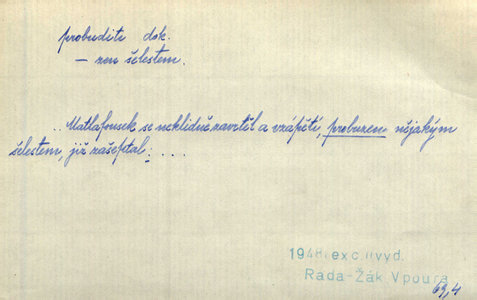 probuditi dok.
– zen šelestem.
.. Matlafousek se neklidně zavrtěl a vzápětí, probuzen nějakým
šelestem, již zašeptal: ...
1948, exc. II vyd.
Rada-Žák Vpoura
69,4